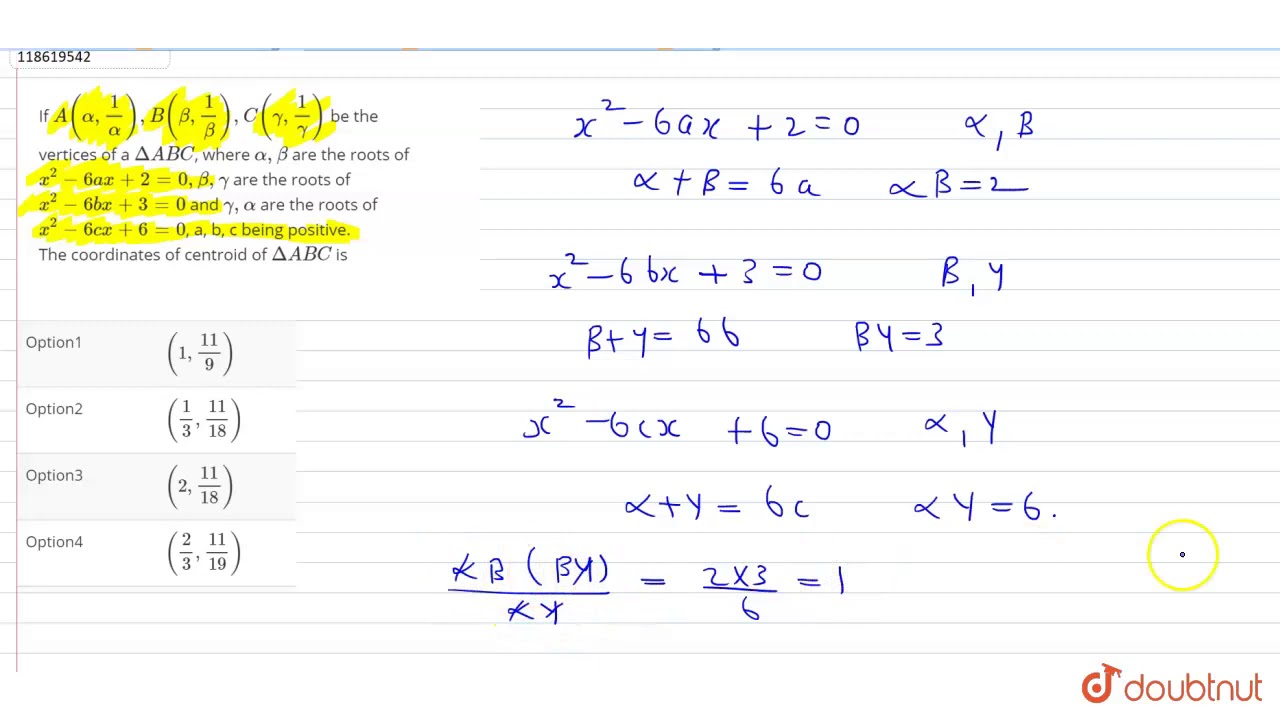 118619542
If A(α, 1/α), B(β, 1/β), C(γ, 1/γ) be the
vertices of a ΔABC, where α, β are the roots of
x² − 6ax + 2 = 0, β, γ are the roots of
x² − 6bx + 3 = 0 and γ, α are the roots of
x² − 6cx + 6 = 0, a, b, c being positive.
The coordinates of centroid of ΔABC is
Option1 (1, 11/9)
Option2 (1/3, 11/18)
Option3 (2, 11/18)
Option4 (2/3, 11/19)
x² − 6ax + 2 = 0 α, β
α + β = 6a αβ = 2
x² − 6bx + 3 = 0 β, γ
β + γ = 6b βγ = 3
x² − 6cx + 6 = 0 α, γ
α + γ = 6c αγ = 6.
αβ(βγ)/αγ = 2×3/6 = 1
doubtnut